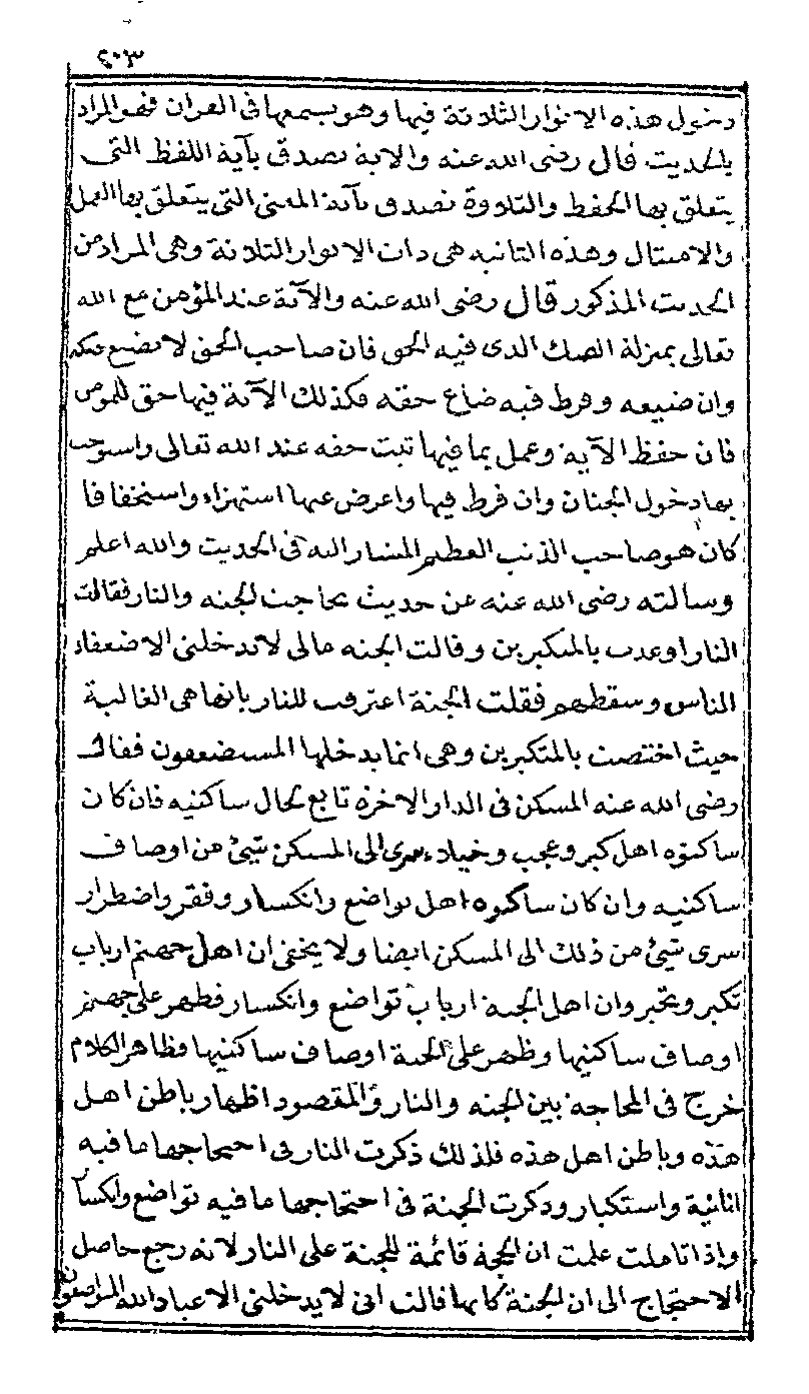 ٢٠٣
دخول هذه الانوار الثلاثة فيها وهو يسمعها فى القران فهو المراد
بالحديث قال رضى الله عنه والاية تصدق بآية اللفظ التى
يتعلق بها الحفظ والتلاوة وتصدق بآية المعنى التى يتعلق بها العمل
والامتثال وهذه الثانيه هى ذات الانوار الثلاثة وهى المراد من
الحديث المذكور قال رضى الله عنه والآية عند المؤمن مع الله
تعالى بمنزلة الصك الذى فيه الحق فان صاحب الحق لا يضيع صكه
وان ضيعه وفرط فيه ضاع حقه فكذلك الآية فيها حق للمومن
فان حفظ الآية وعمل بما فيها ثبت حقه عند الله تعالى واستوجب
بها دخول الجنان وان فرط فيها واعرض عنها استهزاء واستخفافا
كان هو صاحب الذنب العظيم المشار اليه فى الحديث والله اعلم
وسالته رضى الله عنه عن حديث تحاجت الجنه والنار فقالت
النار اوعدت بالمتكبرين وقالت الجنه مالى لا تدخلنى الا ضعفاء
الناس وسقطهم فقلت الجنة اعترفت للنار بانها هى الغالبة
حيث اختصت بالمتكبرين وهى انما يدخلها المستضعفون فقال
رضى الله عنه المسكن فى الدار الاخرة تابع لحال ساكنيه فان كان
ساكنوه اهل كبر وعجب وخيلاء سرى الى المسكن شيئ من اوصاف
ساكنيه وان كان ساكنوه اهل تواضع وانكسار وفقر واضطرار
سرى شيئ من ذلك الى المسكن ايضا ولا يخفى ان اهل جهنم ارباب
تكبر وتجبر وان اهل الجنة ارباب تواضع وانكسار فظهر على جهنم
اوصاف ساكنيها وظهر على الجنة اوصاف ساكنيها فظاهر الكلام
خرج فى المحاجه بين الجنه والنار والمقصود اظهار باطن اهل
هذه وباطن اهل هذه فلذلك ذكرت النار فى احتجاجها ما فيه
انانية واستكبار وذكرت الجنة فى احتجاجها ما فيه تواضع وانكسار
واذا تاملت علمت ان الحجة قائمة للجنة على النار لانه رجع حاصل
الاحتجاج الى ان الجنة كانها قالت انى لا يدخلنى الا عباد الله المتواضعون